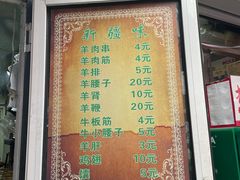 新疆味
羊肉串 4元
羊肉筋 4元
羊排 5元
羊腰子 20元
羊肾 10元
羊鞭 20元
牛板筋 4元
牛小腰子 5元
羊肝 3元
鸡翅 10元
馕 5元